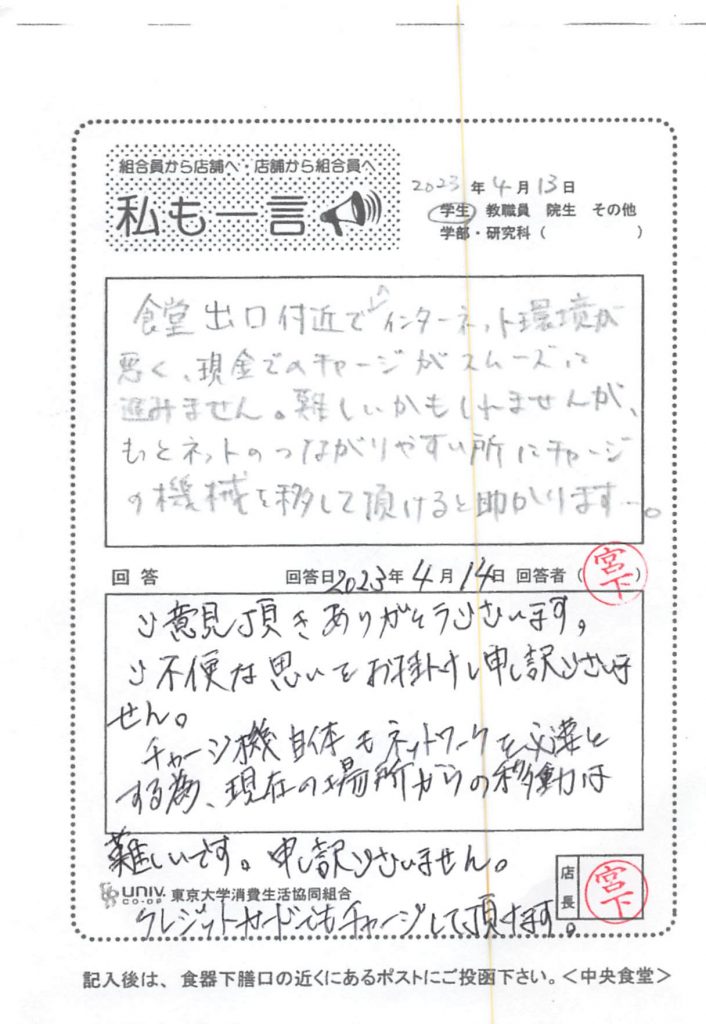 組合員から店舗へ・店舗から組合員へ
私も一言
2023年4月13日
学生 教職員 院生 その他
学部・研究科（ ）
食堂出口付近でインターネット環境が
悪く、現金でのチャージがスムーズに
進みません。難しいかもしれませんが、
もっとネットのつながりやすい所にチャージ
の機械を移して頂けると助かります…。
回答 回答日2023年4月14日 回答者（宮下）
ご意見頂きありがとうございます。
ご不便な思いをお掛けし申し訳ございま
せん。
チャージ機自体もネットワークを必要と
する為、現在の場所からの移動は
難しいです。申し訳ございません。
店長 宮下
UNIV. CO-OP 東京大学消費生活協同組合
クレジットカードでもチャージして頂けます。
記入後は、食器下膳口の近くにあるポストにご投函下さい。＜中央食堂＞